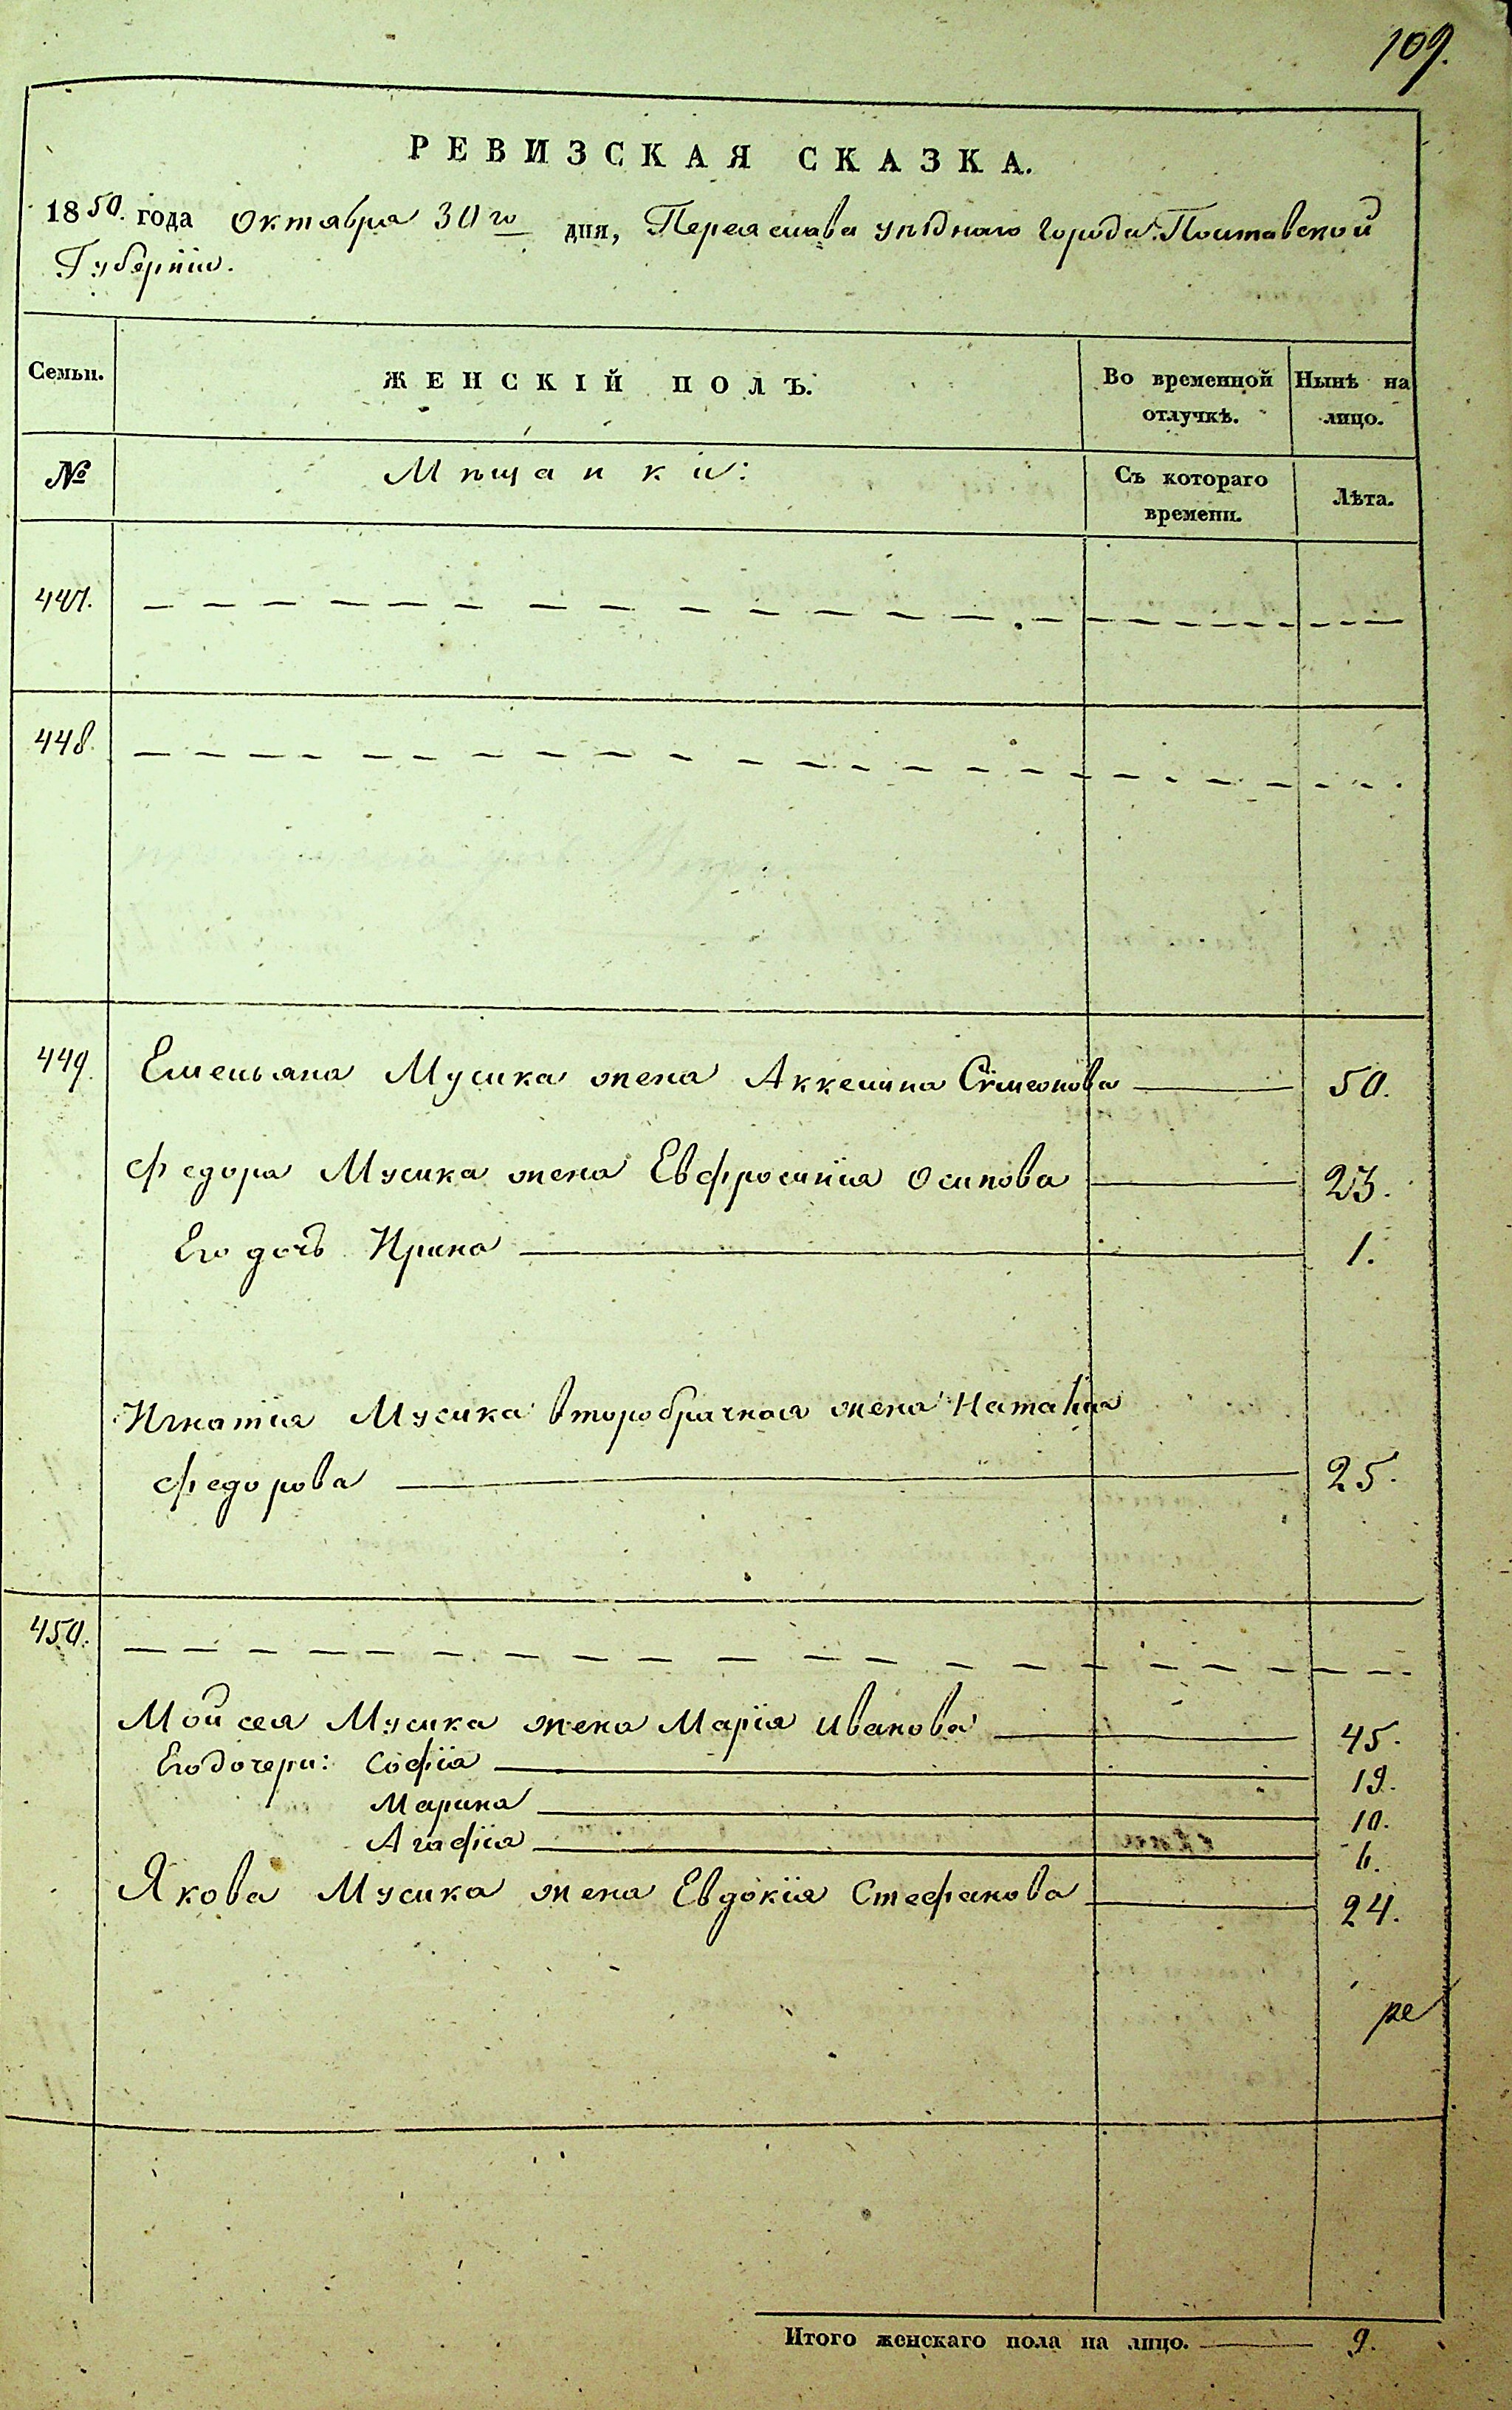 109.
РЕВИЗСКАЯ СКАЗКА.
1850. года Октября 30го дня, Переяслава уѣзднаго города Полтавской
Губерніи.
Семьи.
ЖЕНСКІЙ ПОЛЪ.
Во временной
отлучкѣ.
Нынѣ на
лицо.
№
Мѣщанки:
Съ котораго
времени.
Лѣта.
447.
448.
449.
Емельяна Мусика жена Аккелина Симеонова 50.
Федора Мусика жена Евфросинія Осипова 23.
Его дочь Ирина 1.
Игнатія Мусика второбрачная жена Наталія
Федорова 25.
450.
Мойсея Мусика жена Марія Иванова 45.
Его дочери: Софія 19.
Марина 10.
Агафія 6.
Якова Мусика жена Евдокія Стефанова 24.
ре
Итого женскаго пола на лицо. 9.